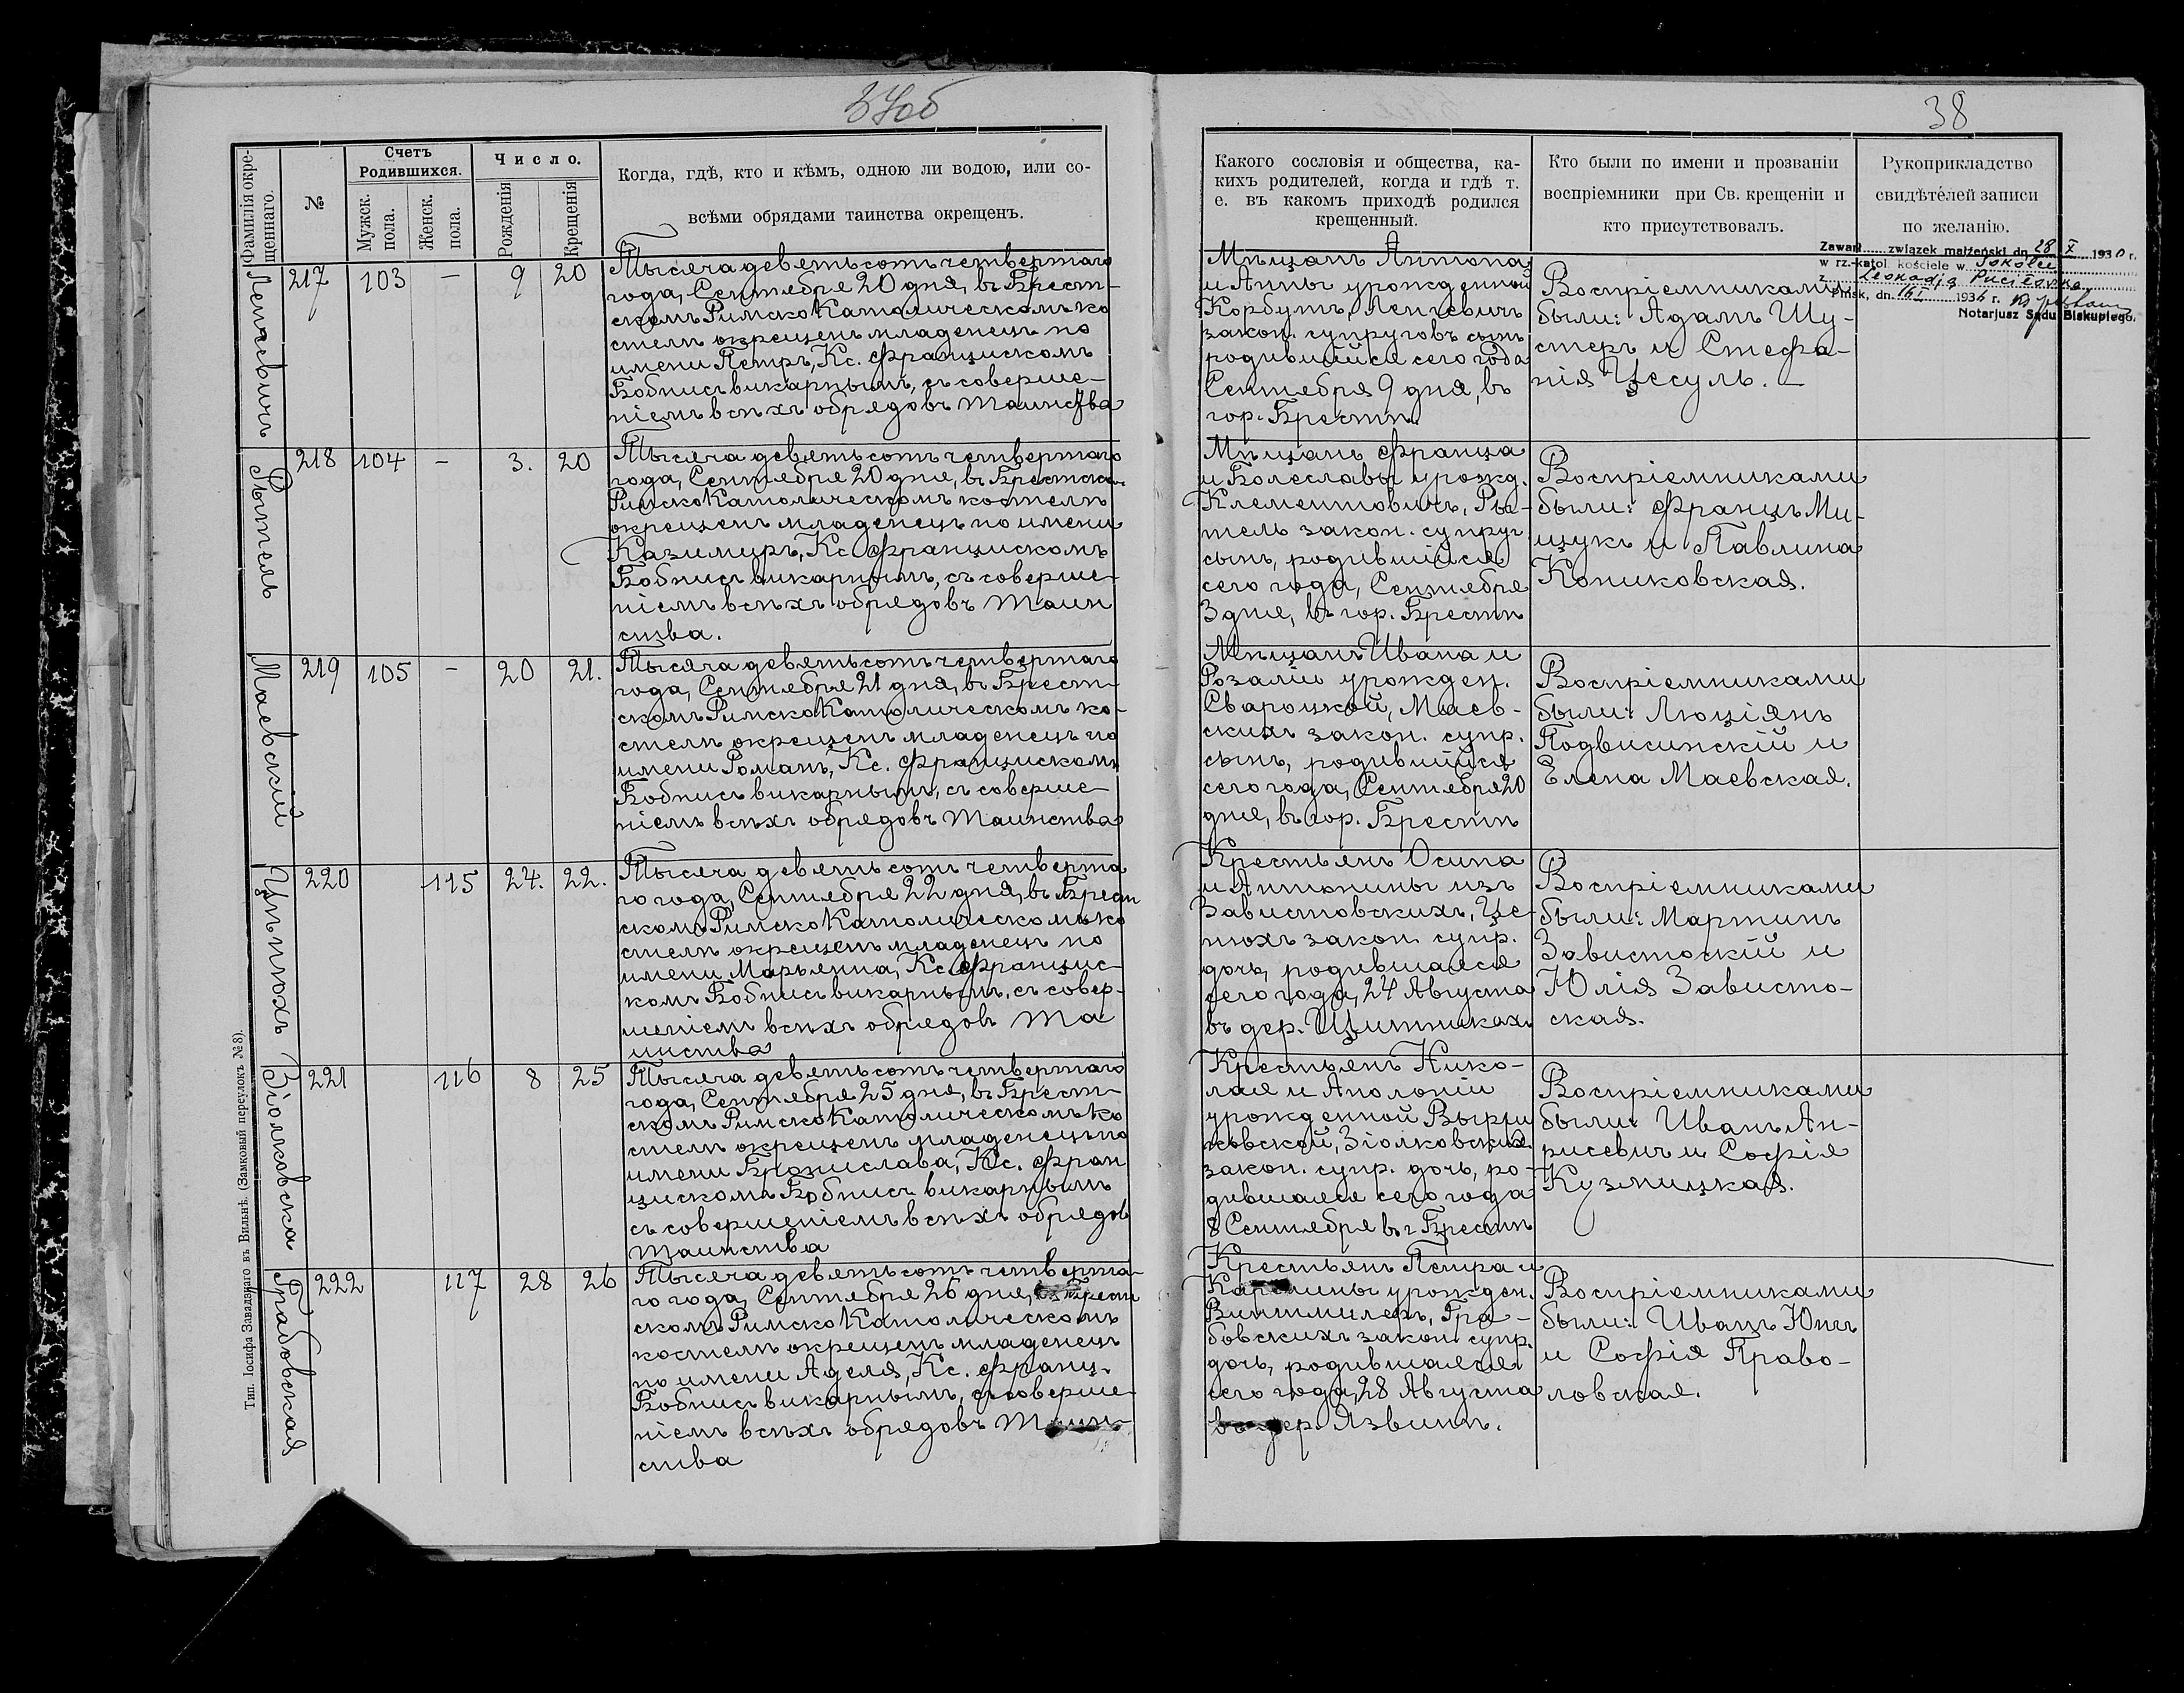 37об
38
Фамилія окре-
щеннаго.
№
Счетъ
Родившихся.
Мужск.
пола.
Женск.
пола.
Число.
Рожденія
Крещенія
Когда, гдѣ, кто и кѣмъ, одною ли водою, или со-
всѣми обрядами таинства окрещенъ.
Какого сословія и общества, ка-
кихъ родителей, когда и гдѣ т.
е. въ какомъ приходѣ родился
крещенный.
Кто были по имени и прозваніи
воспріемники при Св. крещеніи и
кто присутствовалъ.
Рукоприкладство
свидѣтелей записи
по желанію.
217 103 — 9 20
Тысяча девятьсотъ четвертаго
года, Сентября 20 дня, въ Брест-
скомъ Римско Католическомъ ко
стелѣ окрещенъ младенецъ по
имени Петръ, Кс. Францискомъ
Бобнисъ викарнымъ, съ соверше-
ніемъ всѣхъ обрядовъ таинства
Мѣщанъ Антона
и Анны урожденной
Корбутъ,
закон. супруговъ сынъ
родившійся сего года
Сентября 9 дня, въ
гор. Брестѣ.
Воспріемниками
были: Адамъ Шу-
стеръ и Стефа-
нія Цесуль. —
Zawarł związek małżeński dn. 28 X 1930 r.
w rz.-katol. kościele w
z Leokadją
Pińsk, dn. 1936 r.
Notarjusz Sądu Biskupiego.
Рытель
218 104 - 3. 20
Тысяча девятьсотъ четвертаго
года, Сентября 20 дня, въ Брестском
Римско Католическомъ костелѣ
окрещенъ младенецъ по имени
Казимиръ, Кс. Францискомъ
Бобнисъ викарнымъ, съ соверше-
ніемъ всѣхъ обрядовъ таин
ства.
Мѣщанъ Франца
и Болеславы урожд.
Клементовичъ, Ры-
тель закон. супруг
сынъ, родившійся
сего года, Сентября
3 дня, въ гор. Брестѣ
Воспріемниками
были: Францъ Ми-
щукъ и Павлина
Кониковская.
Маевскій
219 105 - 20 21.
Тысяча девятьсотъ четвертаго
года, Сентября 21 дня, въ Брест-
скомъ Римско Католическомъ ко-
стелѣ окрещенъ младенецъ по
имени Романъ, Кс. Францискомъ
Бобнисъ викарнымъ, съ соверше-
ніемъ всѣхъ обрядовъ таинства
Мѣщанъ Ивана и
Розаліи урожден.
Свароцкой, Маев-
скихъ закон. супр.
сынъ, родившійся
сего года, Сентября 20
дня, въ гор. Брестѣ
Воспріемниками
были: Люціянъ
Подвисинскій и
Елена Маевская.
220 115 24. 22.
Тысяча девятьсотъ четверта
го года, Сентября 22 дня, въ Брест
скомъ Римско Католическомъ ко
стелѣ окрещенъ младенец по
имени Марьянна, Кс. Францис-
комъ Бобнисъ викарнымъ, съ совер-
шеніемъ всѣхъ обрядовъ та
инства
Крестьянъ Осипа
и Антонины изъ
Завистовскихъ, Це-
пюхъ закон. супр.
дочь, родившаяся
сего года, 24 Августа
въ дер.
Воспріемниками
были: Мартинъ
Завистоскій и
Юлія Зависто-
ская.
Зіолковска
221 116 8 25
Тысяча девятьсотъ четвертаго
года, Сентября 25 дня, въ Брест-
скомъ Римско Католическомъ ко
стелѣ окрещенъ младенецъ по
имени Брониславa, Кс. Фран
цискомъ Бобнисъ викарнымъ
съ совершеніемъ всѣхъ обрядов
таинства
Крестьянъ Нико-
лая и Аполоніи
урожденной
Зіолковских
закон. супр. дочь, ро-
дившаяся сего года
8 Сентября въ г Брестѣ
Воспріемниками
были: Иванъ Ан-
рисевичъ и Софія
Кузмицкая.
Грабовская
222 117 28 26
Тысяча девятьсотъ четверта-
го года, Сентября 26 дня, въ Брест
скомъ Римско Католическомъ
костелѣ окрещенъ младенец
по имени Аделя, Кс. Франц.
Бобнисъ викарнымъ, съ соверше-
ніемъ всѣхъ обрядовъ Таин-
ства
Крестьянъ Петра и
Каролины урожден.
Гра-
бовскихъ закон. супр.
дочь, родившаяся
сего года, 28 Августа
въ дер. Язвинѣ.
Воспріемниками
были: Иванъ
и Софія Право-
ловская.
Тип. Іосифа Завадзкаго въ Вильнѣ. (Замковый переулокъ № 8).